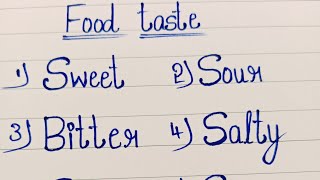 Food taste
1) Sweet 2) Sour
3) Bitter 4) Salty